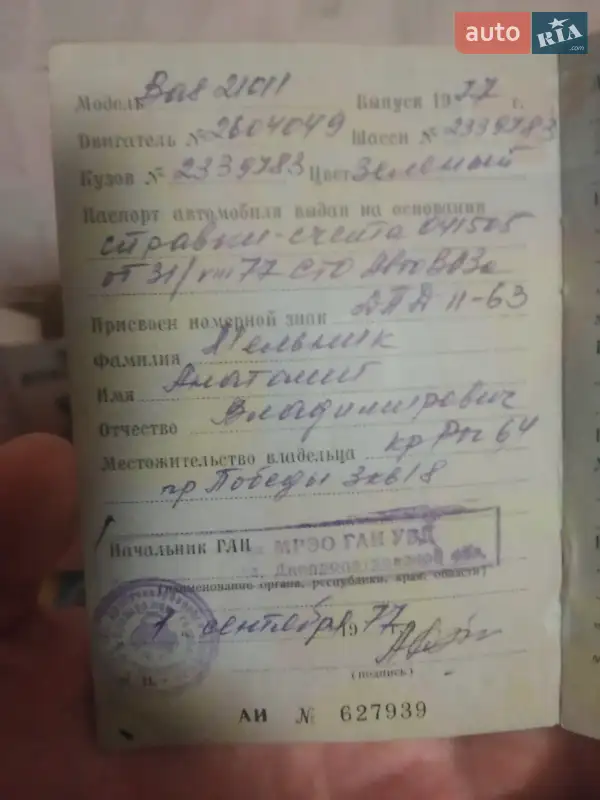 auto RIA .com
Модель Ваз 21011 Выпуск 1977 г.
Двигатель № 2604049 Шасси № 2339783
Кузов № 2339783 Цвет Зеленый
Паспорт автомобиля выдан на основании
справки-счета 041505
от 31/VIII 77 СТО АвтоВАЗа
Присвоен номерной знак 11-63
Фамилия Мельник
Имя Анатолий
Отчество Владимирович
Местожительство владельца кр Рог 64
пр Победы 3 кв 18
Начальник ГАИ МРЭО ГАИ УВД
Днепропетровской обл.
(наименование органа, республики, края, области)
1 сентября 1977
(подпись)
М. П.
АИ № 627939